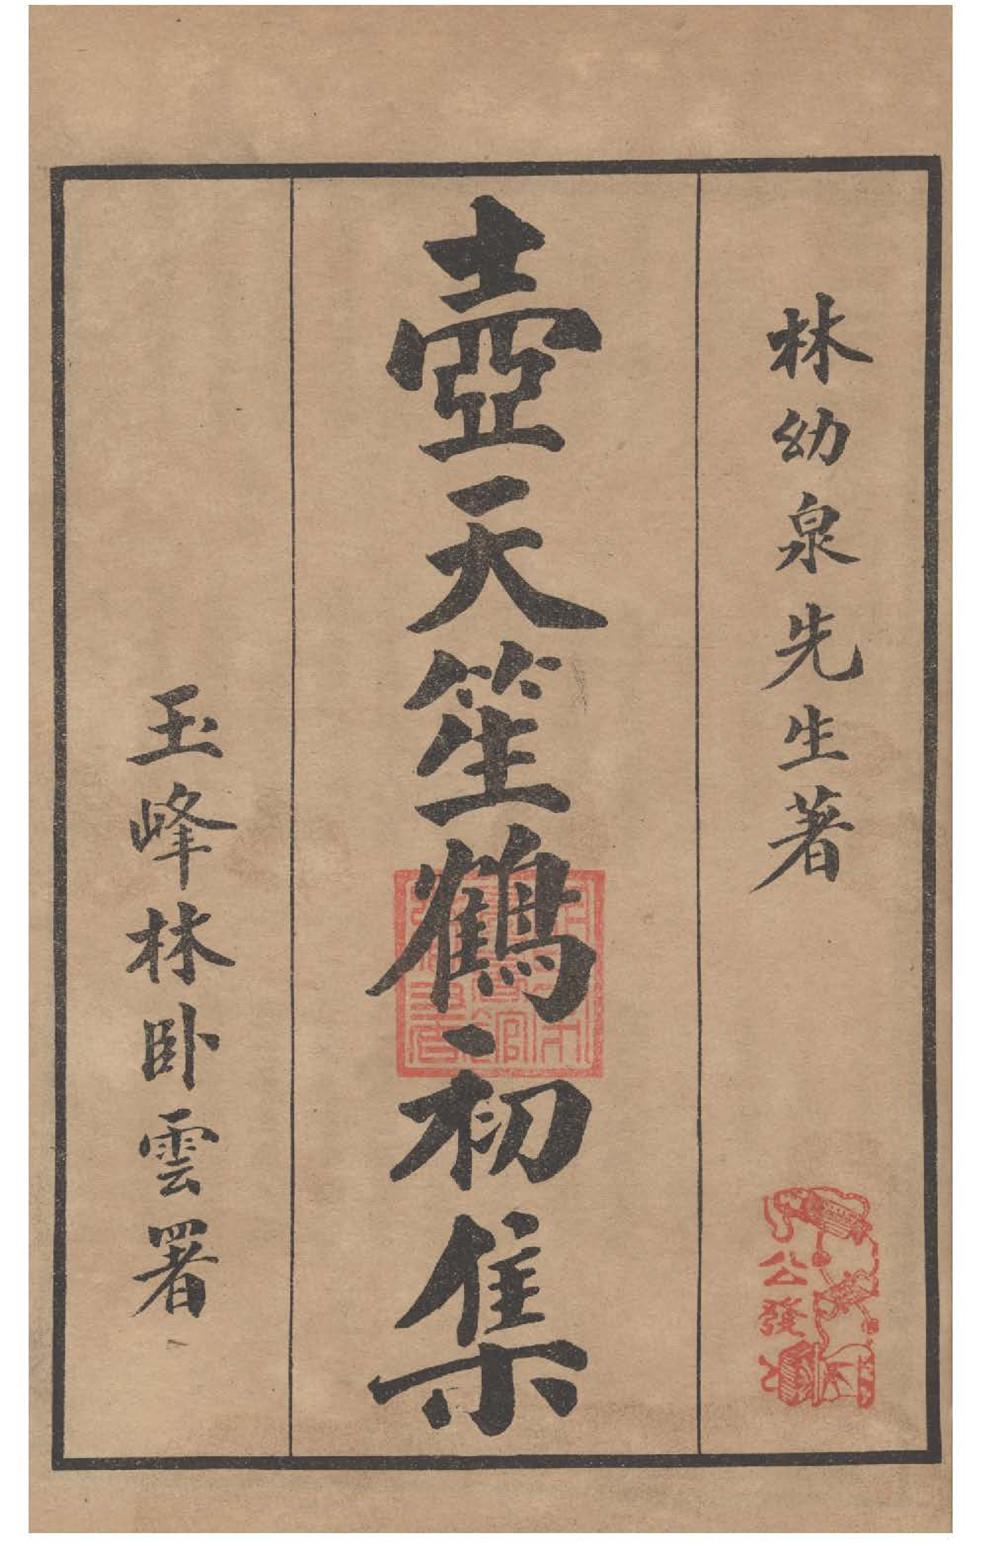 林幼泉先生著
壺天笙鶴初集
玉峰林卧雲署
公發